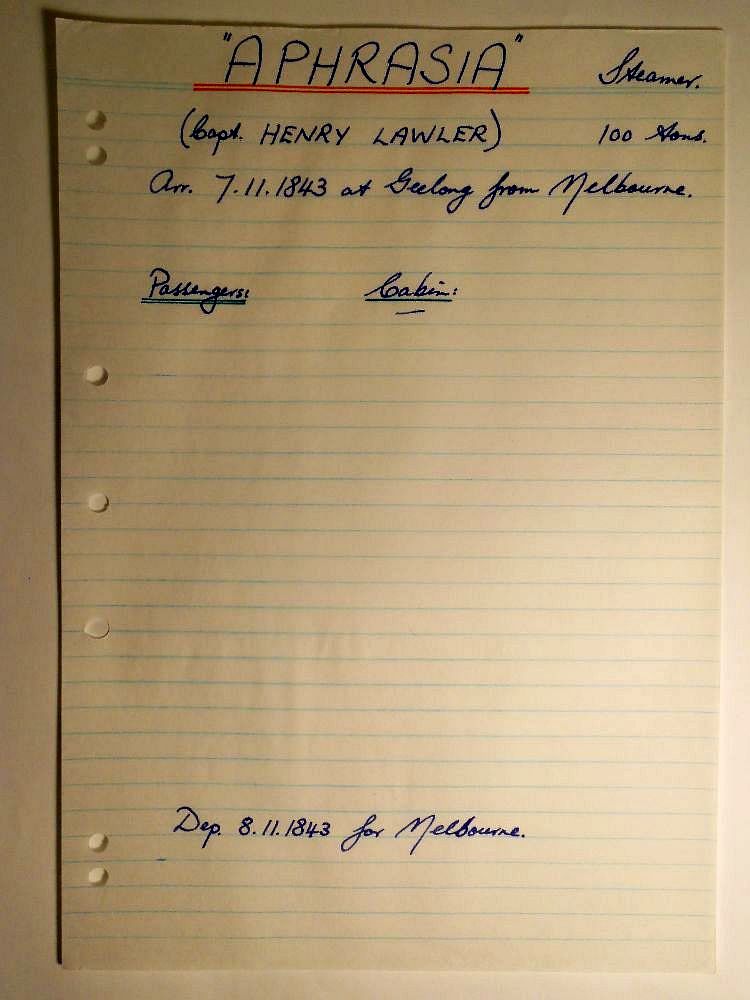 "APHRASIA" Steamer.
(Capt. HENRY LAWLER) 100 tons.
Arr. 7.11.1843 at Geelong from Melbourne.
Passengers: Cabin:
Dep. 8.11.1843 for Melbourne.